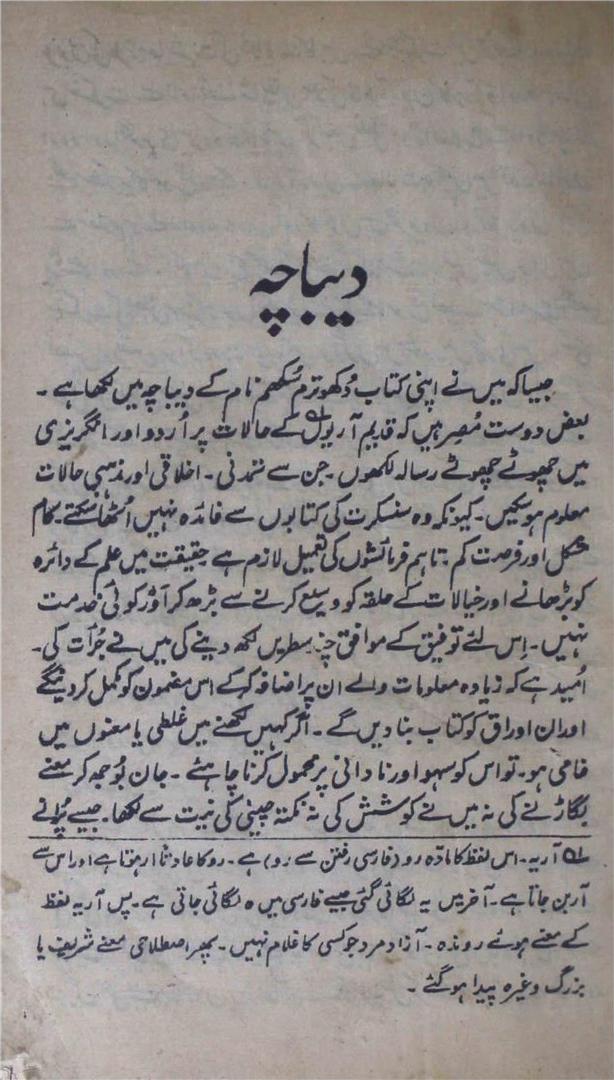 دیباچہ
جیسا کہ میں نے اپنی کتاب دُکھوترم سُکھم نام کے دیباچہ میں لکھا ہے ۔
بعض دوست مُصِر ہیں کہ قدیم آریوں کے حالات پر اُردو اور انگریزی
میں چھوٹے چھوٹے رسالہ لکھوں ۔ جن سے تمدنی ۔ اخلاقی اور مذہبی حالات
معلوم ہو سکیں ۔ کیونکہ وہ سنسکرت کی کتابوں سے فائدہ نہیں اُٹھا سکتے ۔ کام
مشکل اور فرصت کم ۔ تاہم فرمائشوں کی تعمیل لازم ہے حقیقت میں علم کے دائرہ
کو بڑھانے اور خیالات کے حلقہ کو وسیع کرنے سے بڑھ کر اَور کوئی خدمت
نہیں ۔ اِس لئے توفیق کے موافق چند سطریں لکھ دینے کی میں نے جُرأت کی ۔
اُمید ہے کہ زیادہ معلومات والے ان پر اضافہ کر کے اس مضمون کو مکمل کر دینگے
اور ان اوراق کو کتاب بنا دیں گے ۔ اگر کہیں لکھنے میں غلطی یا معنوں میں
خامی ہو ۔ تو اس کو سہو اور نادانی پر محمول کرنا چاہئے ۔ جان بُوجھ کر معنے
بگاڑنے کی نہ میں نے کوشش کی نہ نکتہ چینی کی نیت سے لکھا ۔ جیسے پُرانے
لہ آریہ ۔ اس لفظ کا مادّہ رو (فارسی رفتن سے رو) ہے ۔ رو کا عادتاً ار ہوتا ہے اور اس سے
آر بن جاتا ہے ۔ آخر میں یہ لگائی گئی جیسے فارسی میں ہ لگائی جاتی ہے ۔ پس آریہ لفظ
کے معنے ہوئے روندہ ۔ آزاد مرد جو کسی کا غلام نہیں ۔ پھر اصطلاحی معنے شریف یا
بزرگ وغیرہ پیدا ہو گئے ۔